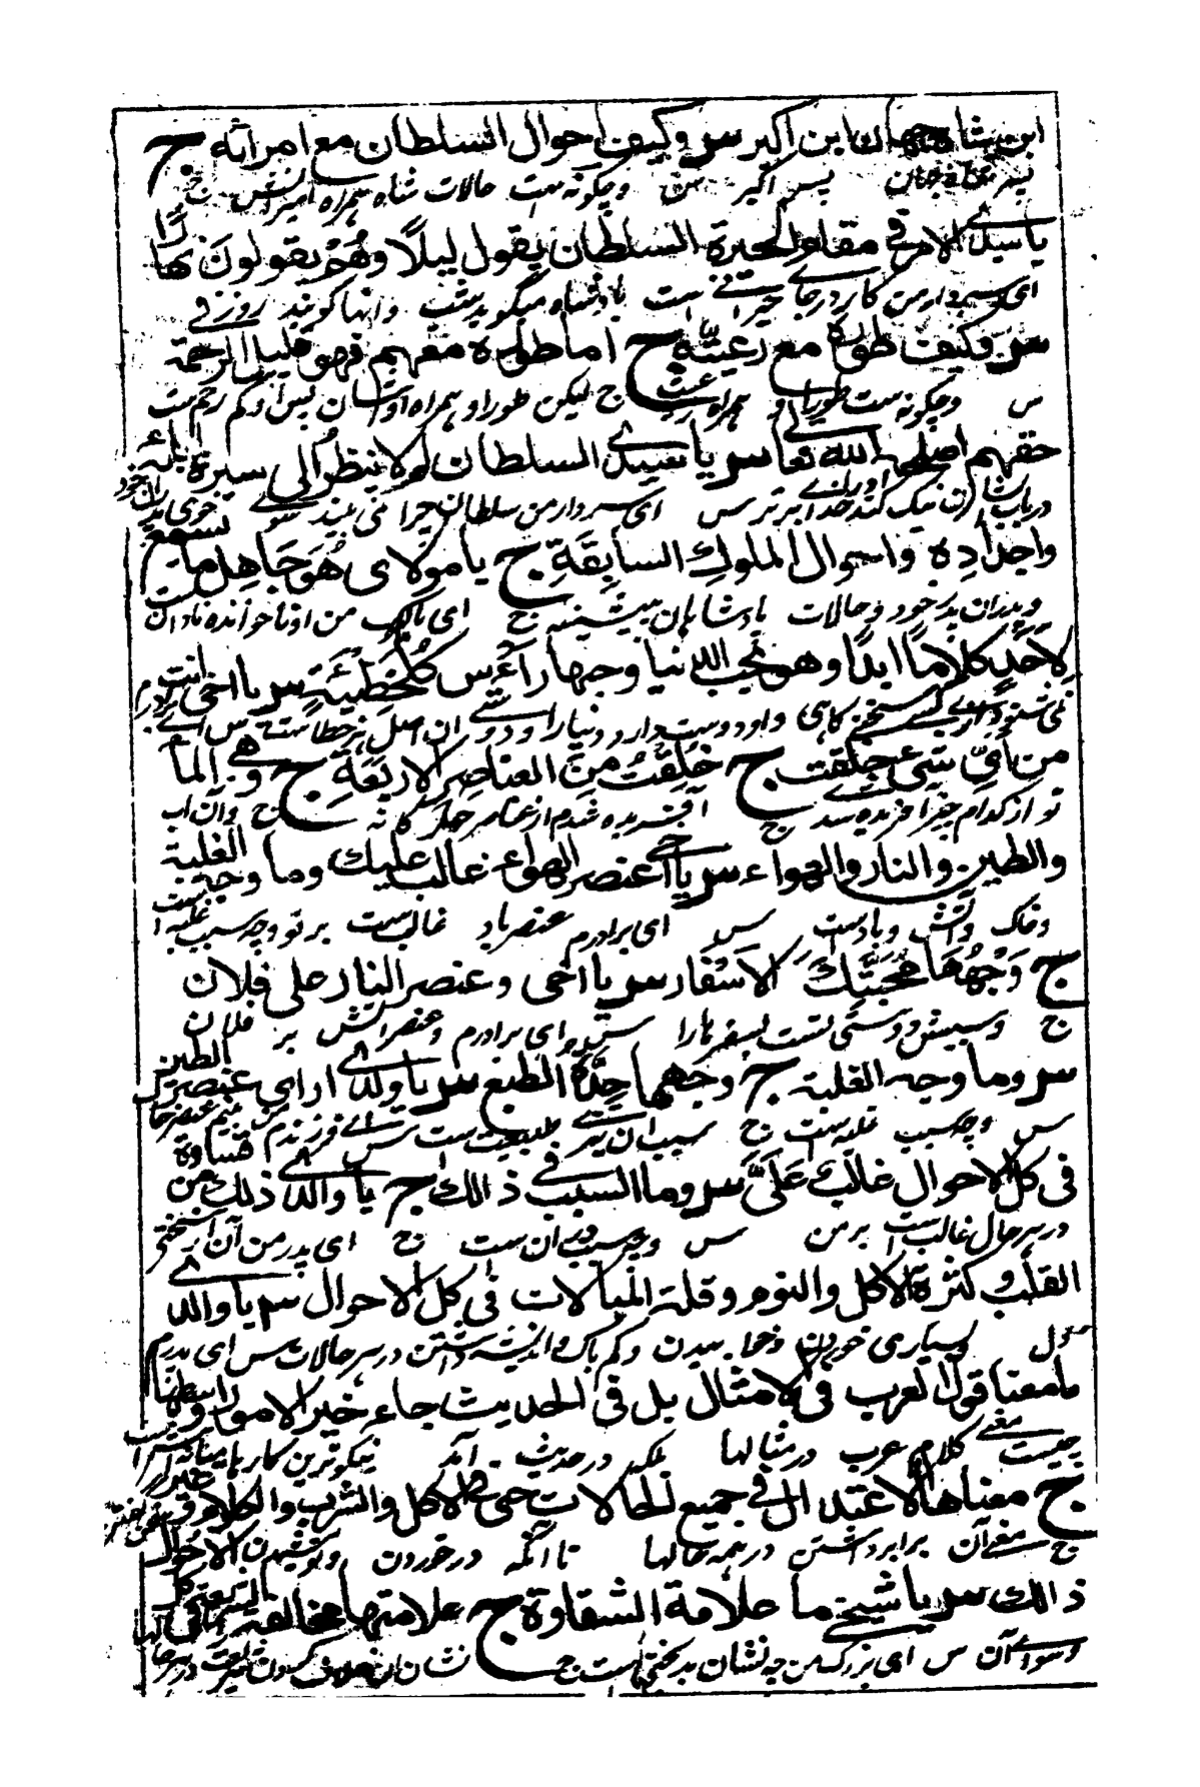 ابن شاه جهان ابن اكبر س وكيف احوال السلطان مع امرائه ج
پسر اكبر س وچگونه ست حالات شاه همراه اميرانش ج
ياسيدى الامر فى مقام الحيرة السلطان يقول ليلًا وهُمْ يقولونَ نهارًا
اى سردار من كار در جاے حيرانے ست بادشاه ميگويد شب وانها گويند روز
س وكيف طوره مع رعيتّه ج اما طوره معهم فهو قليل الرحمة
س وچگونه ست طور او همراه رعيت ج ليكن طور او همراه اوشان پس او كم رحم ست
حقهم اصلحه الله تعالى س ياسيدى السلطان لم لا ينظر الى سيرة ابائه
نيك كند خدا برتر س اى سردار من سلطان چرا نمى بيند سوے
واجدادِه واحوال الملوكِ السابِقَةِ ج يامولاى هُوَ جَاهِل ما سمع
وپدران پدر خود وحالات بادشاهان پيشينه ج اى مالك من او ناخوانده نادان ست
لِاَحدٍ كلامًا ابدًا وهو يحب الدنيا وحبها رأس كُلِّ خَطِيْئَةٍ س يا اخى انت
كسے سخن گاهى واو دوست دارد دنيا را ودوستے آن اصل هر خطاست س اے
من اىِّ شىء خلقت ج خُلِقْتُ مِنَ العناصِرِ الاربَعَةِ ج وهى الماء
تو از كدام چيز افريده شد ج آفريده شدم از عناصر چهار گانه ج وآن آب
والطين والنار والهواء س يا اخى عنصر الهواء غالب عليك وما وجه الغلبة
وخاك وآتش وباد ست س اى برادرم عنصر باد غالب ست بر تو وچه سبب غلبه است
ج وَجْهُهَا مُحَبَّتُكَ الاَسْفَار س يا اخى وعنصر النار على فلان
ج وسببش دوستى تست سفرها را س اى برادرم وعنصر آتش بر فلان
س وما وجه الغلبة ج وجهها حِدَّةُ الطبع س ياولدى ارى عنصر الطين
س وچه سبب غلبه ست ج سبب آن تيزے طبيعت ست س اے فرزندم مى بينم عنصر خاك
فى كل الاحوال غالبٌ عَلَىَّ س وما السبب فى ذالك ج ياوالدى ذلك من قساوة
در هر حال غالب ست بر من س وچه سبب در آن ست ج اى پدر من آن از سختى
القلب وكثرة الاكل والنوم وقلة المبالات فى كل الاحوال س ياوالدى
وبسيارى خوردن وخوابيدن وكم باك وانديشه داشتن در هر حالات س اى پدرم
ما معنا قول العرب فى الامثال بل فى الحديث جاء خير الامور اوسطها
چيست معنے كلام عرب در مثالها بلكه در حديث آمد نيكوترين كارها ميانه
ج معناها الاعتدال فى جميع الحالات حتى فى الاكل والشرب والكلام وغير
ج معنے آن برابر داشتن در همه حالها تا آنكه در خوردن ونوشيدن
ذالك س ياشيخى ما علامة الشقاوة ج علامتها مخالفة الشريعة فى كل الاحوال
وسواے آن س اى بزرگ من چه نشان بدبختى است ج نشان آن خلاف كردن شريعت در هر حال